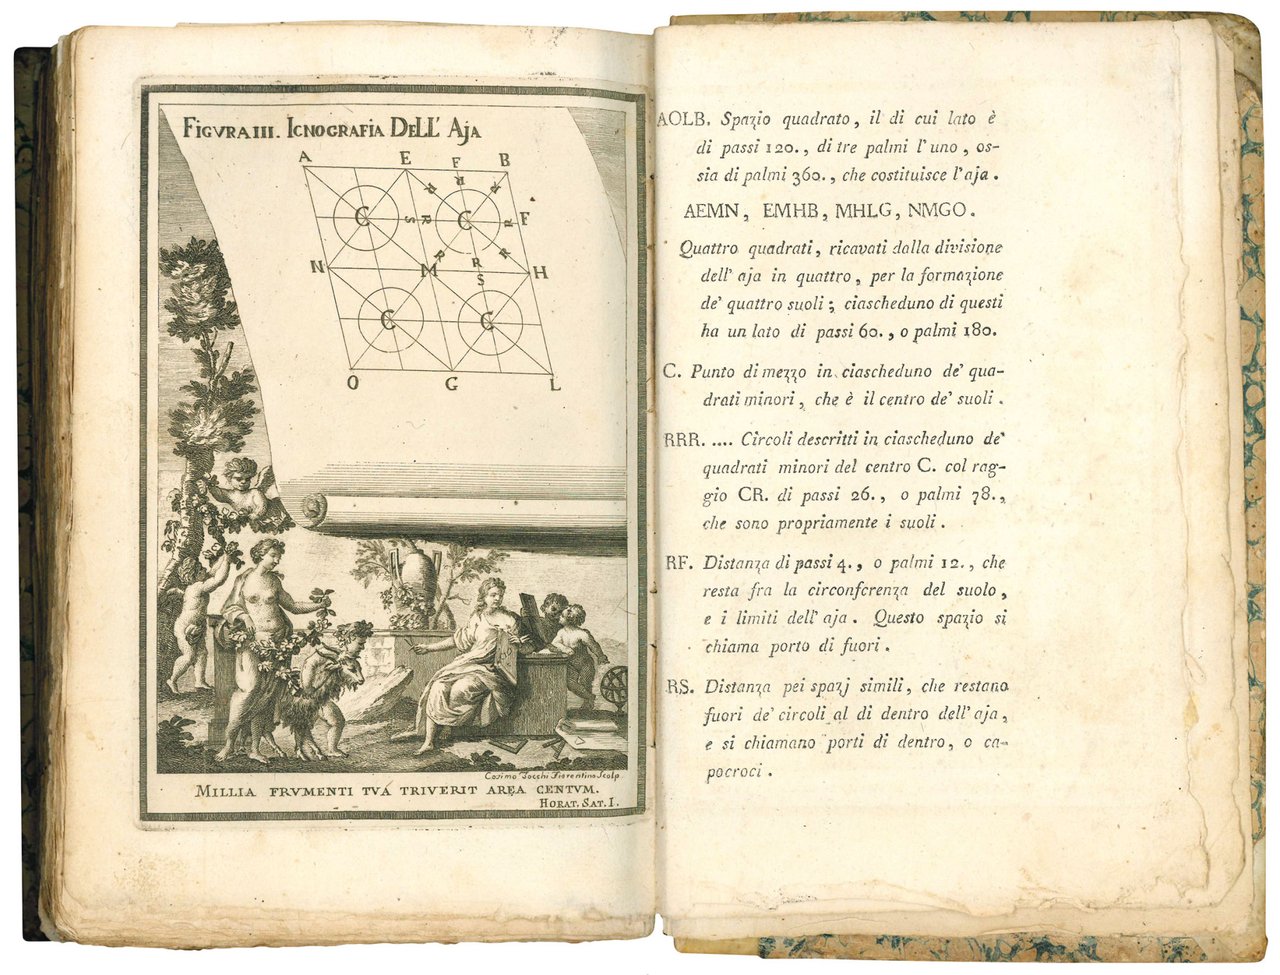 FIGVRA III. ICNOGRAFIA DELL' AJA
A E F B
R R R
C S R C R F
R R
N M R H
S
C C
O G L
Cosimo Zocchi Fiorentino Sculp.
MILLIA FRVMENTI TVÁ TRIVERIT AREA CENTVM.
HORAT. SAT. I.
AOLB. Spazio quadrato, il di cui lato è
di passi 120., di tre palmi l' uno, os-
sia di palmi 360., che costituisce l'aja.
AEMN, EMHB, MHLG, NMGO.
Quattro quadrati, ricavati dalla divisione
dell' aja in quattro, per la formazione
de' quattro suoli; ciascheduno di questi
ha un lato di passi 60., o palmi 180.
C. Punto di mezzo in ciascheduno de' qua-
drati minori, che è il centro de' suoli.
RRR. .... Circoli descritti in ciascheduno de'
quadrati minori del centro C. col rag-
gio CR. di passi 26., o palmi 78.,
che sono propriamente i suoli.
RF. Distanza di passi 4., o palmi 12., che
resta fra la circonferenza del suolo,
e i limiti dell' aja. Questo spazio si
chiama porto di fuori.
RS. Distanza pei spazj simili, che restano
fuori de' circoli al di dentro dell' aja,
e si chiamano porti di dentro, o ca-
pocroci.